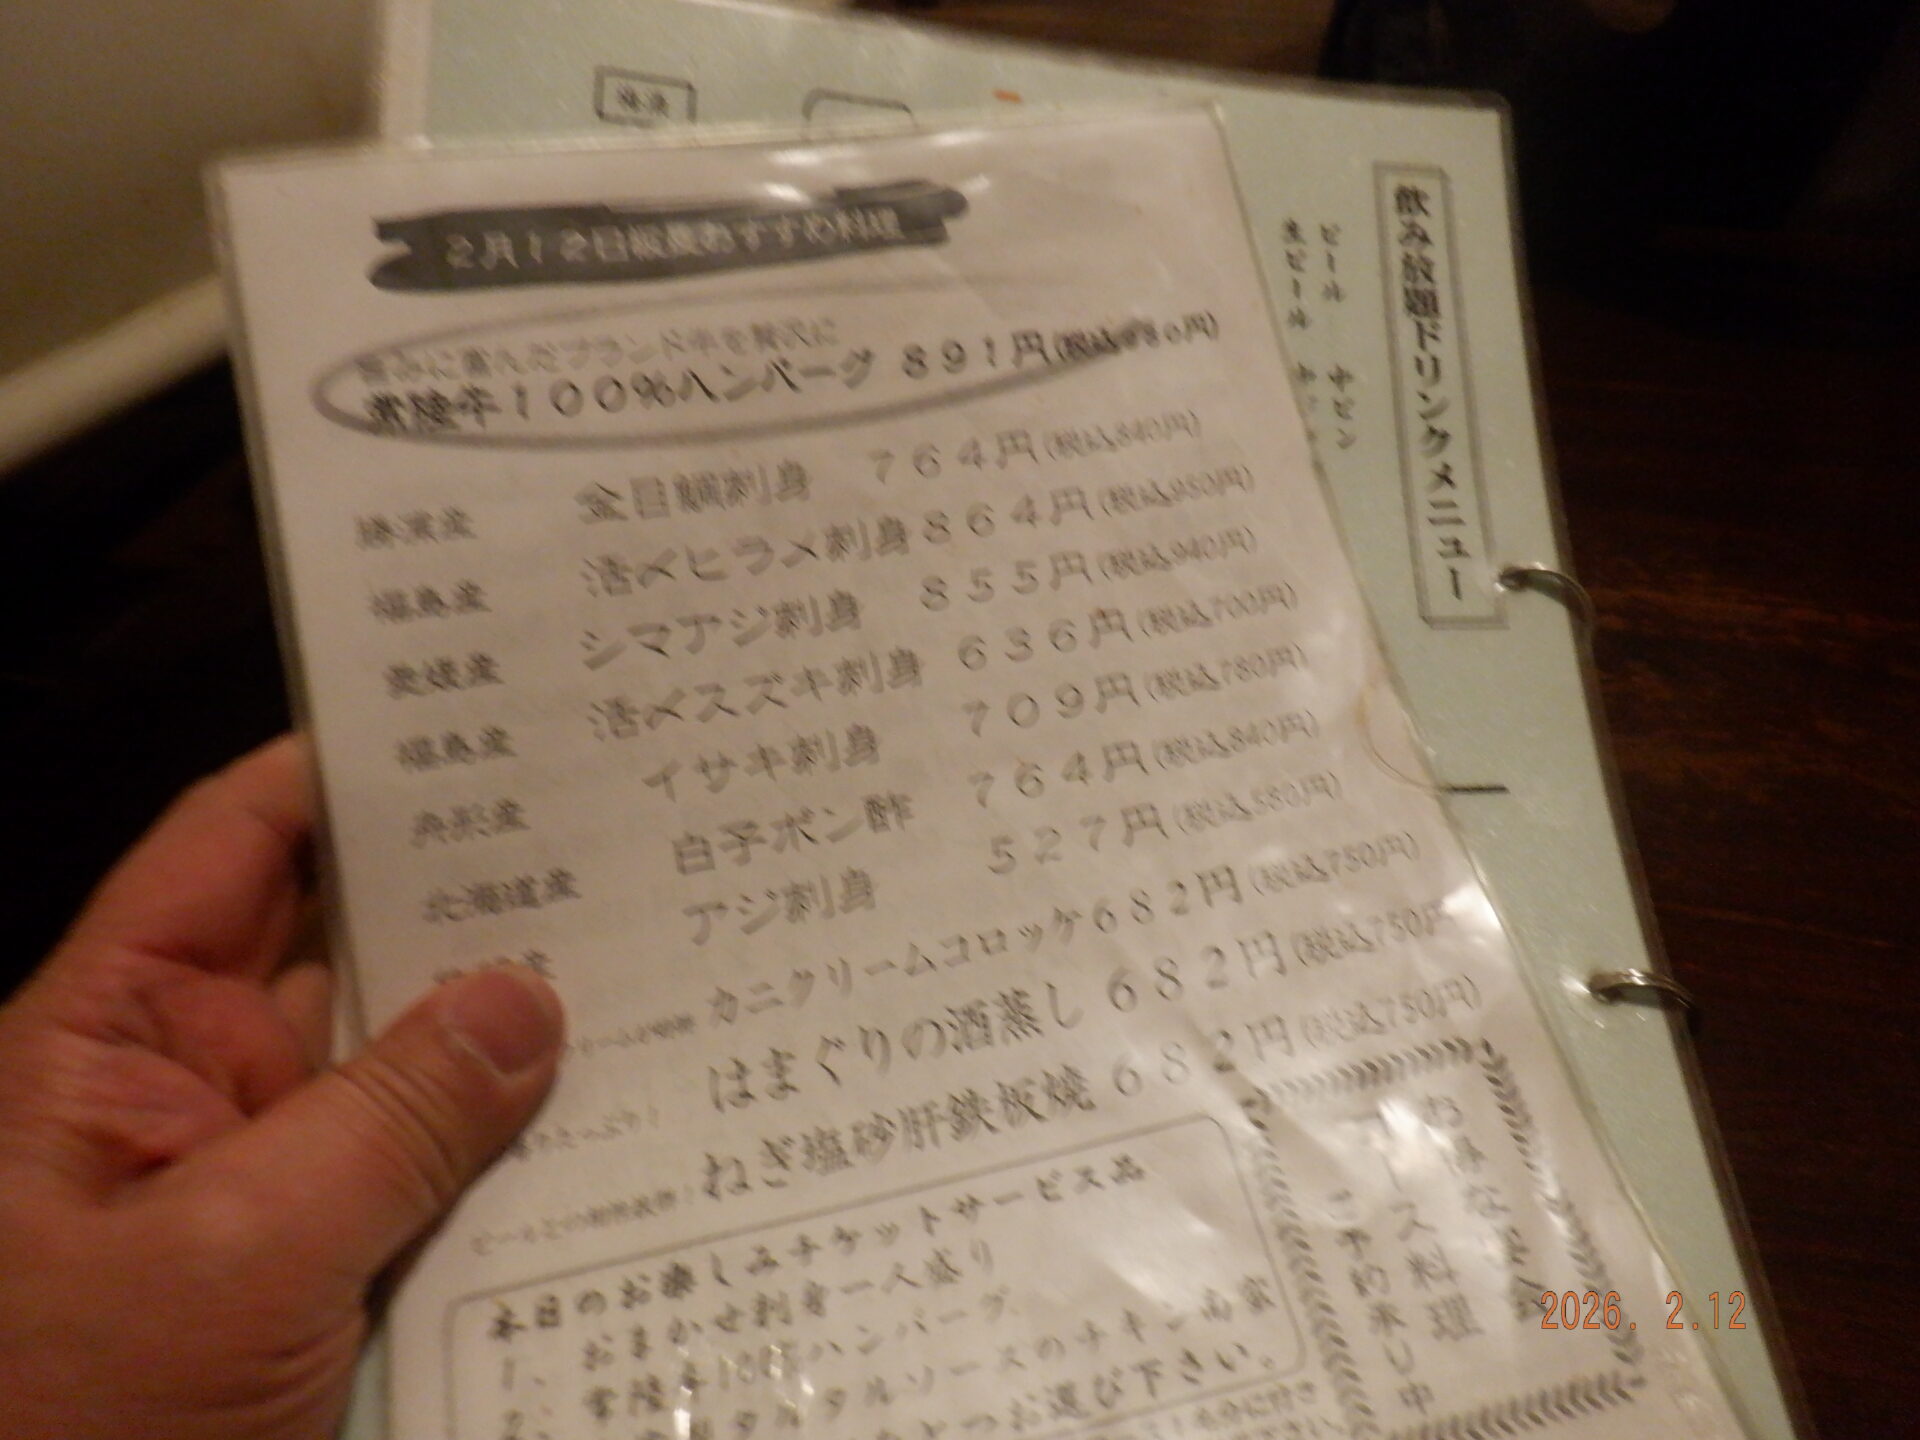 2月12日板長おすすめ料理
旨みに富んだブランド牛を贅沢に
常陸牛100%ハンバーグ 891円(税込980円)
勝浦産 金目鯛刺身 764円(税込840円)
福島産 活〆ヒラメ刺身 864円(税込950円)
愛媛産 シマアジ刺身 855円(税込940円)
福島産 活〆スズキ刺身 636円(税込700円)
イサキ刺身 709円(税込780円)
北海道産 白子ポン酢 764円(税込840円)
アジ刺身 527円(税込580円)
カニクリームコロッケ 682円(税込750円)
たっぷり! はまぐりの酒蒸し 682円(税込750円
ビールとの相性抜群! ねぎ塩砂肝鉄板焼 682円(税込750円)
本日のお楽しみチケットサービス品
1、おまかせ刺身一人盛り
2、常陸牛100%ハンバーグ
タルタルソースのチキン南蛮
とつお選び下さい。
お得な
コース料理
ご予約承り中
飲み放題ドリンクメニュー
ビール 中ビン
生ビール
2026. 2.12